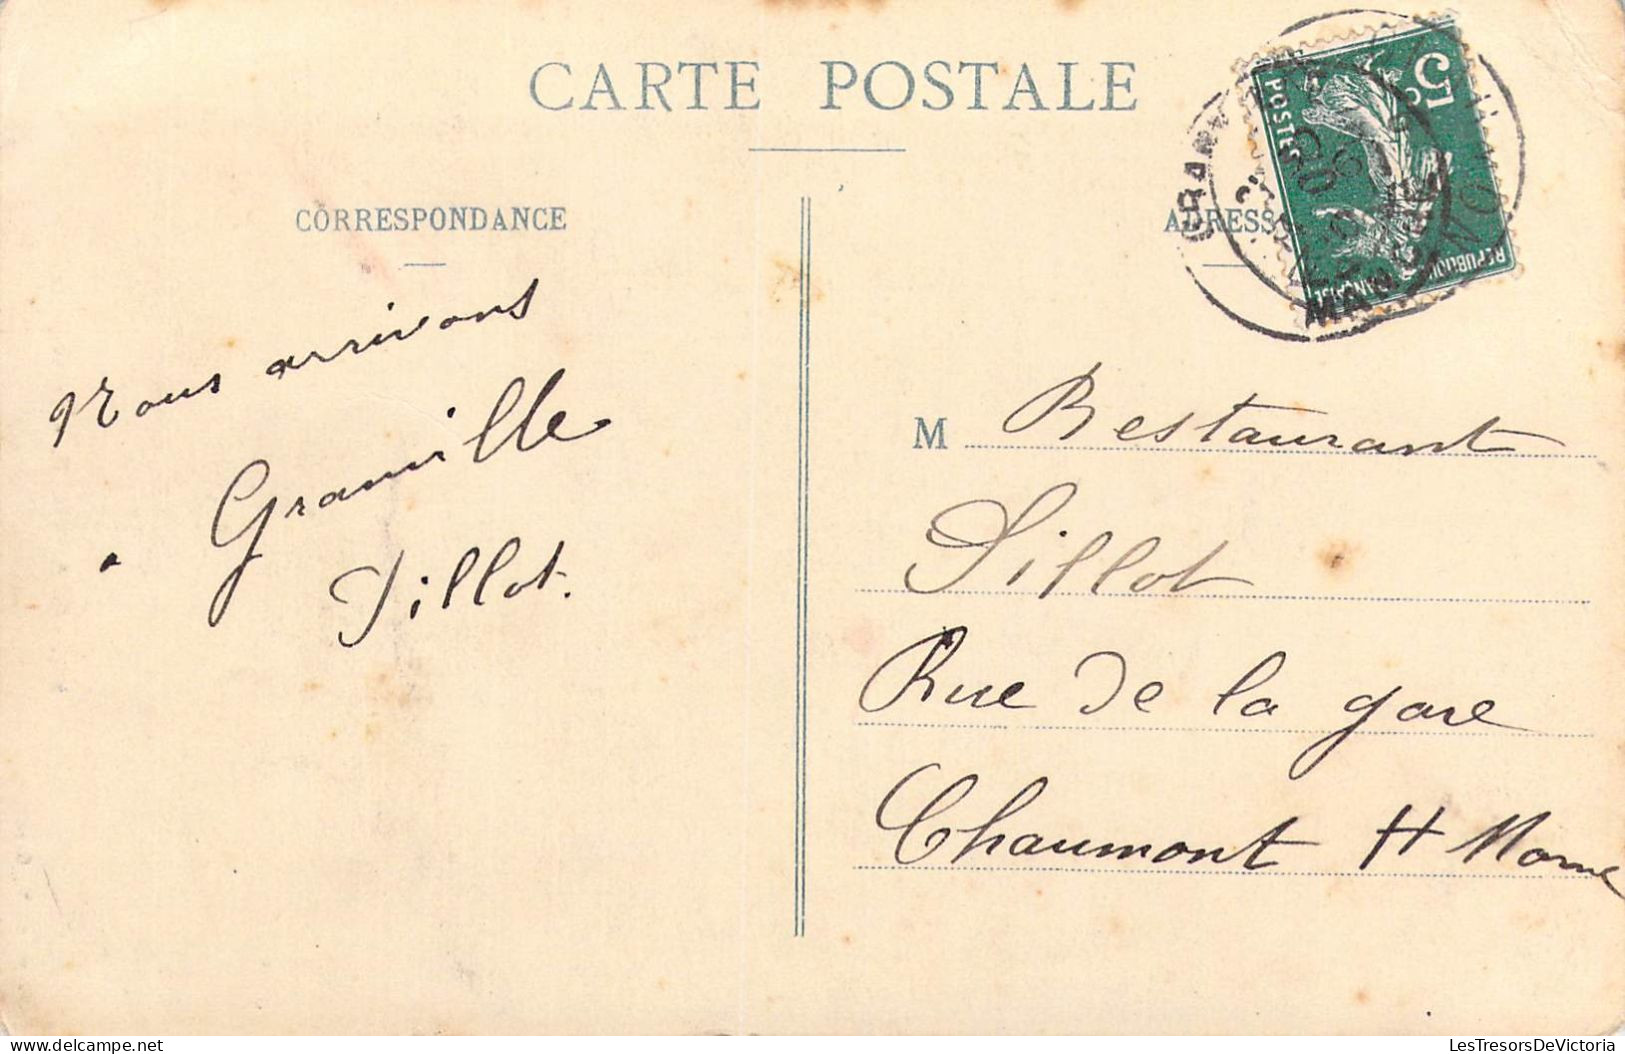 CARTE POSTALE
CORRESPONDANCE
Nous arrivons
a Granville
Sillot.
ADRESS
5c
POSTES
REPUBLIQUE FRANÇAISE
MANCHE
M Restaurant
Sillot
Rue de la gare
Chaumont H Marne
LesTresorsDeVictoria